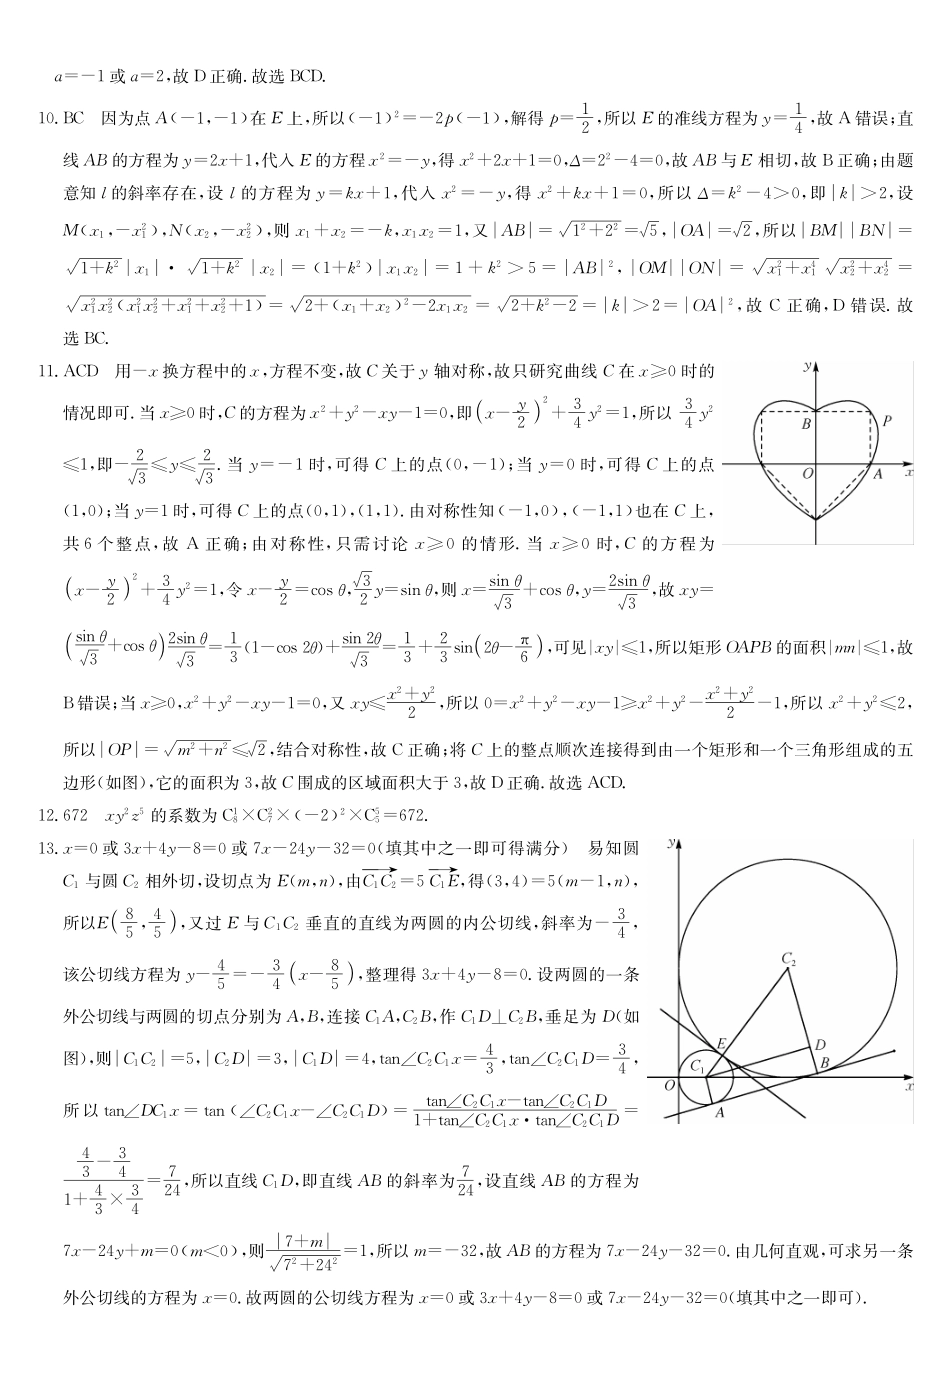 a=-1 或 a=2,故 D 正确. 故选 BCD.
10. BC 因为点 A(-1,-1)在 E 上,所以(-1)²=-2p(-1),解得 p=1/2,所以 E 的准线方程为 y=1/4,故 A 错误;直
线 AB 的方程为 y=2x+1,代入 E 的方程 x²=-y,得 x²+2x+1=0,Δ=2²-4=0,故 AB 与 E 相切,故 B 正确;由题
意知 l 的斜率存在,设 l 的方程为 y=kx+1,代入 x²=-y,得 x²+kx+1=0,所以 Δ=k²-4>0,即|k|>2,设
M(x₁,-x₁²),N(x₂,-x₂²),则 x₁+x₂=-k,x₁x₂=1,又|AB|=√(1²+2²)=√5,|OA|=√2,所以|BM||BN|=
√(1+k²)|x₁|·√(1+k²)|x₂|=(1+k²)|x₁x₂|=1+k²>5=|AB|²,|OM||ON|=√(x₁²+x₁⁴)√(x₂²+x₂⁴)=
√(x₁²x₂²(x₁²x₂²+x₁²+x₂²+1))=√(2+(x₁+x₂)²-2x₁x₂)=√(2+k²-2)=|k|>2=|OA|²,故 C 正确,D 错误. 故
选 BC.
11. ACD 用-x 换方程中的 x,方程不变,故 C 关于 y 轴对称,故只研究曲线 C 在 x≥0 时的
情况即可. 当 x≥0 时,C 的方程为 x²+y²-xy-1=0,即(x-y/2)²+3/4y²=1,所以 3/4y²
≤1,即-2/√3≤y≤2/√3. 当 y=-1 时,可得 C 上的点(0,-1);当 y=0 时,可得 C 上的点
(1,0);当 y=1 时,可得 C 上的点(0,1),(1,1). 由对称性知(-1,0),(-1,1)也在 C 上,
共 6 个整点,故 A 正确;由对称性,只需讨论 x≥0 的情形. 当 x≥0 时,C 的方程为
(x-y/2)²+3/4y²=1,令 x-y/2=cos θ,√3/2y=sin θ,则 x=sin θ/√3+cos θ,y=2sin θ/√3,故 xy=
(sin θ/√3+cos θ)2sin θ/√3=1/3(1-cos 2θ)+sin 2θ/√3=1/3+2/3sin(2θ-π/6),可见|xy|≤1,所以矩形 OAPB 的面积|mn|≤1,故
B 错误;当 x≥0,x²+y²-xy-1=0,又 xy≤(x²+y²)/2,所以 0=x²+y²-xy-1≥x²+y²-(x²+y²)/2-1,所以 x²+y²≤2,
所以|OP|=√(m²+n²)≤√2,结合对称性,故 C 正确;将 C 上的整点顺次连接得到由一个矩形和一个三角形组成的五
边形(如图),它的面积为 3,故 C 围成的区域面积大于 3,故 D 正确. 故选 ACD.
y
B
P
O
A
x
12. 672 xy²z⁵ 的系数为 C₈¹×C₇²×(-2)²×C₅⁵=672.
13. x=0 或 3x+4y-8=0 或 7x-24y-32=0(填其中之一即可得满分) 易知圆
C₁ 与圆 C₂ 相外切,设切点为 E(m,n),由C₁C₂→=5 C₁E→,得(3,4)=5(m-1,n),
所以E(8/5,4/5),又过 E 与 C₁C₂ 垂直的直线为两圆的内公切线,斜率为-3/4,
该公切线方程为 y-4/5=-3/4(x-8/5),整理得 3x+4y-8=0. 设两圆的一条
外公切线与两圆的切点分别为 A,B,连接 C₁A,C₂B,作 C₁D⊥C₂B,垂足为 D(如
图),则|C₁C₂|=5,|C₂D|=3,|C₁D|=4,tan∠C₂C₁x=4/3,tan∠C₂C₁D=3/4,
所以 tan∠DC₁x=tan(∠C₂C₁x-∠C₂C₁D)=(tan∠C₂C₁x-tan∠C₂C₁D)/(1+tan∠C₂C₁x·tan∠C₂C₁D)=
(4/3-3/4)/(1+4/3×3/4)=7/24,所以直线 C₁D,即直线 AB 的斜率为7/24,设直线 AB 的方程为
7x-24y+m=0(m<0),则|7+m|/√(7²+24²)=1,所以 m=-32,故 AB 的方程为 7x-24y-32=0. 由几何直观,可求另一条
外公切线的方程为 x=0. 故两圆的公切线方程为 x=0 或 3x+4y-8=0 或 7x-24y-32=0(填其中之一即可).
y
C₂
E
D
C₁
B
O
x
A